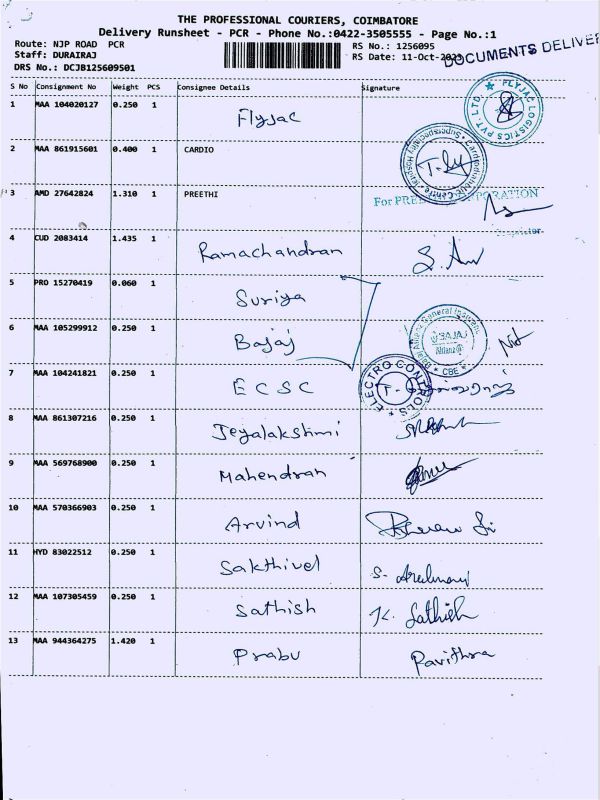 THE PROFESSIONAL COURIERS, COIMBATORE
Delivery Runsheet - PCR - Phone No.:0422-3505555 - Page No.:1
Route: NJP ROAD PCR
RS No.: 1256095
Staff: DURAIRAJ
RS Date: 11-Oct-
DOCUMENTS DELIVER
DRS No.: DCJB125609501
S No Consignment No Weight PCS Consignee Details Signature
1 MAA 104020127 0.250 1 Flyjac
FLYJAC LOGISTICS PVT. LTD.
2 MAA 861915601 0.400 1 CARDIO
3 AMD 27642824 1.310 1 PREETHI
For
4 CUD 2083414 1.435 1 Ramachandran
5 PRO 15270419 0.060 1 Suriya
6 MAA 105299912 0.250 1 Bajaj
Bajaj Allianz General
BAJAJ
Allianz
CBE
7 MAA 104241821 0.250 1 ECSC
ELECTRO CONTROLS
8 MAA 861307216 0.250 1 Jeyalakshmi
9 MAA 569768900 0.250 1 Mahendran
10 MAA 570366903 0.250 1 Arvind
11 HYD 83022512 0.250 1 Sakthivel
12 MAA 107305459 0.250 1 Sathish K. Sathish
13 MAA 944364275 1.420 1 Prabu Pavithra